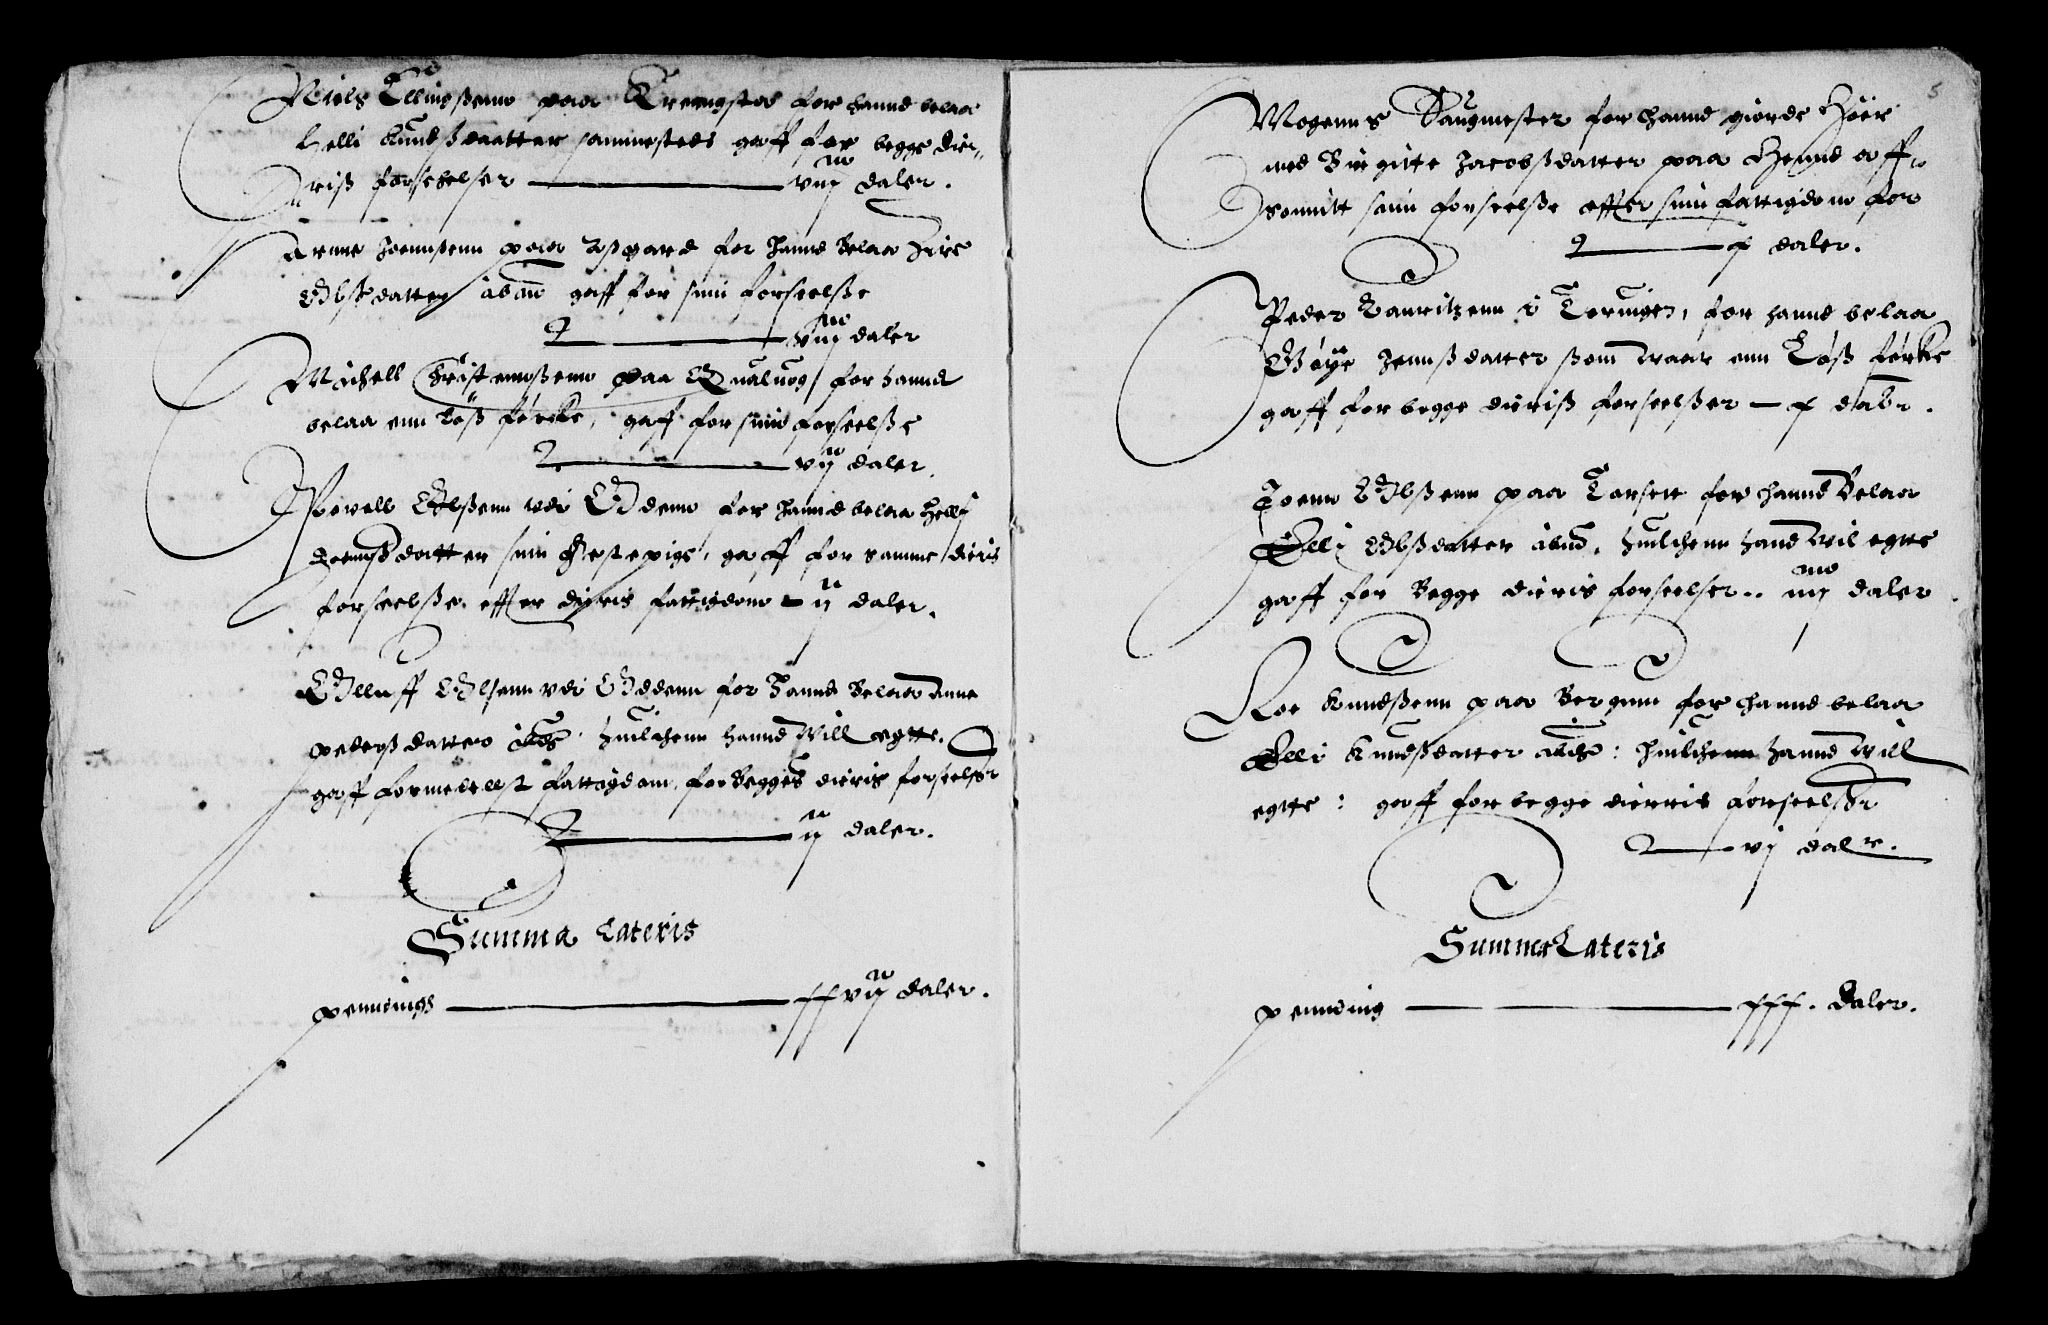 Niels Ellingßenn paa Krengstad for hannd belaa
Helli knudßdaatter sammesteds gaff for begge dier¬
riß forschelser ——— viij daler.
Arne Joennßenn paa Aßgard for hannd Belaa Siri
Olßdatter ibm gaff for sinn forseelße
——— viij daler
Michell Cristennßenn paa Qualuog for hannd
belaa enn Løß fércke, gaff for sinn forseelße
——— vij daler.
Povell Olßenn vdi Odenn for hannd belaa Helly
Joennßdatter sinn festepige, gaff for samme dieris
forseelße, effter dieris fattigdom – ij daler.
Olluff Olsenn vdi Oddenn for hannd Belaa Anne
pederßdatter, huilchenn hannd Will egtte,
gaff formedelst fattigdom, for Begges dieris forseelßer
——— ij daler.
Summa Lateris
penndings ——— xxvij daler.
5
Mogenns Saugmester for hannd giorde Hoer
med Birgitte Jacobßdatter paa
sonnitt sann forseelße effter sinn fattigdom for
——— x daler.
Peder Lauritzenn i Toruigen, for hannd belaa
Gøye Jennßdatter ßom waar enn Løß fércke
gaff for begge dieriß forseelßer – x daler.
Joenn Olßenn paa Torset for hannd Belaa
Elli Olßdatter ibm, huilchenn hannd Wil egtte
gaff for Begge dieris forseelser.. iiij daler
Roe knudßenn paa Bergum for hannd belaa
Elli knudßdatter ibm: huilchenn hannd Will
egtte: gaff for begge dierris forseelßer
——— vj daler.
Summa Lateris
pennding ——— xxx. daler.